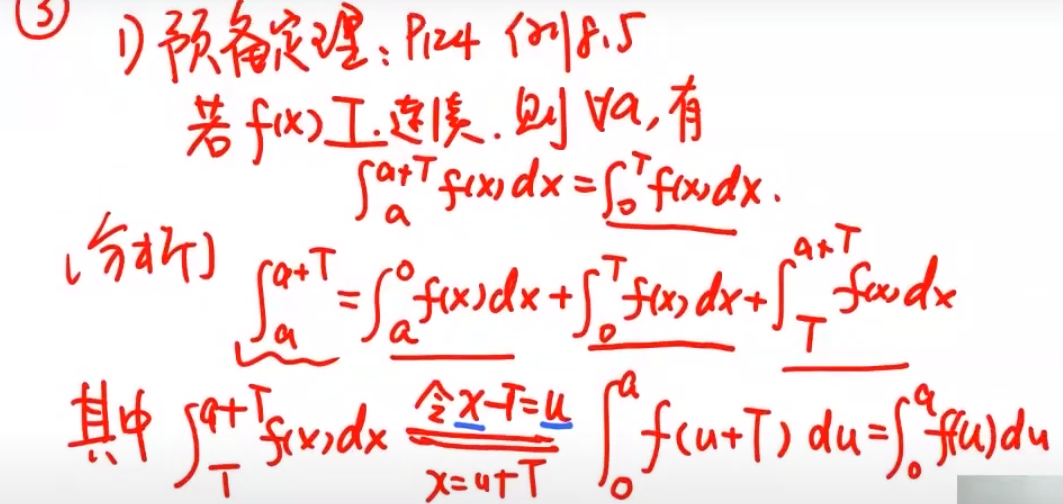 ③ 1) 预备定理: P124 例8.5
若f(x)T.连续.则∀a,有
∫ₐᵃ⁺ᵀ f(x)dx = ∫₀ᵀ f(x)dx.
[分析] ∫ₐᵃ⁺ᵀ = ∫ₐ⁰ f(x)dx + ∫₀ᵀ f(x)dx + ∫_T^(a+T) f(x)dx
其中 ∫_T^(a+T) f(x)dx 令x-T=u x=u+T ∫₀ᵃ f(u+T) du = ∫₀ᵃ f(u)du